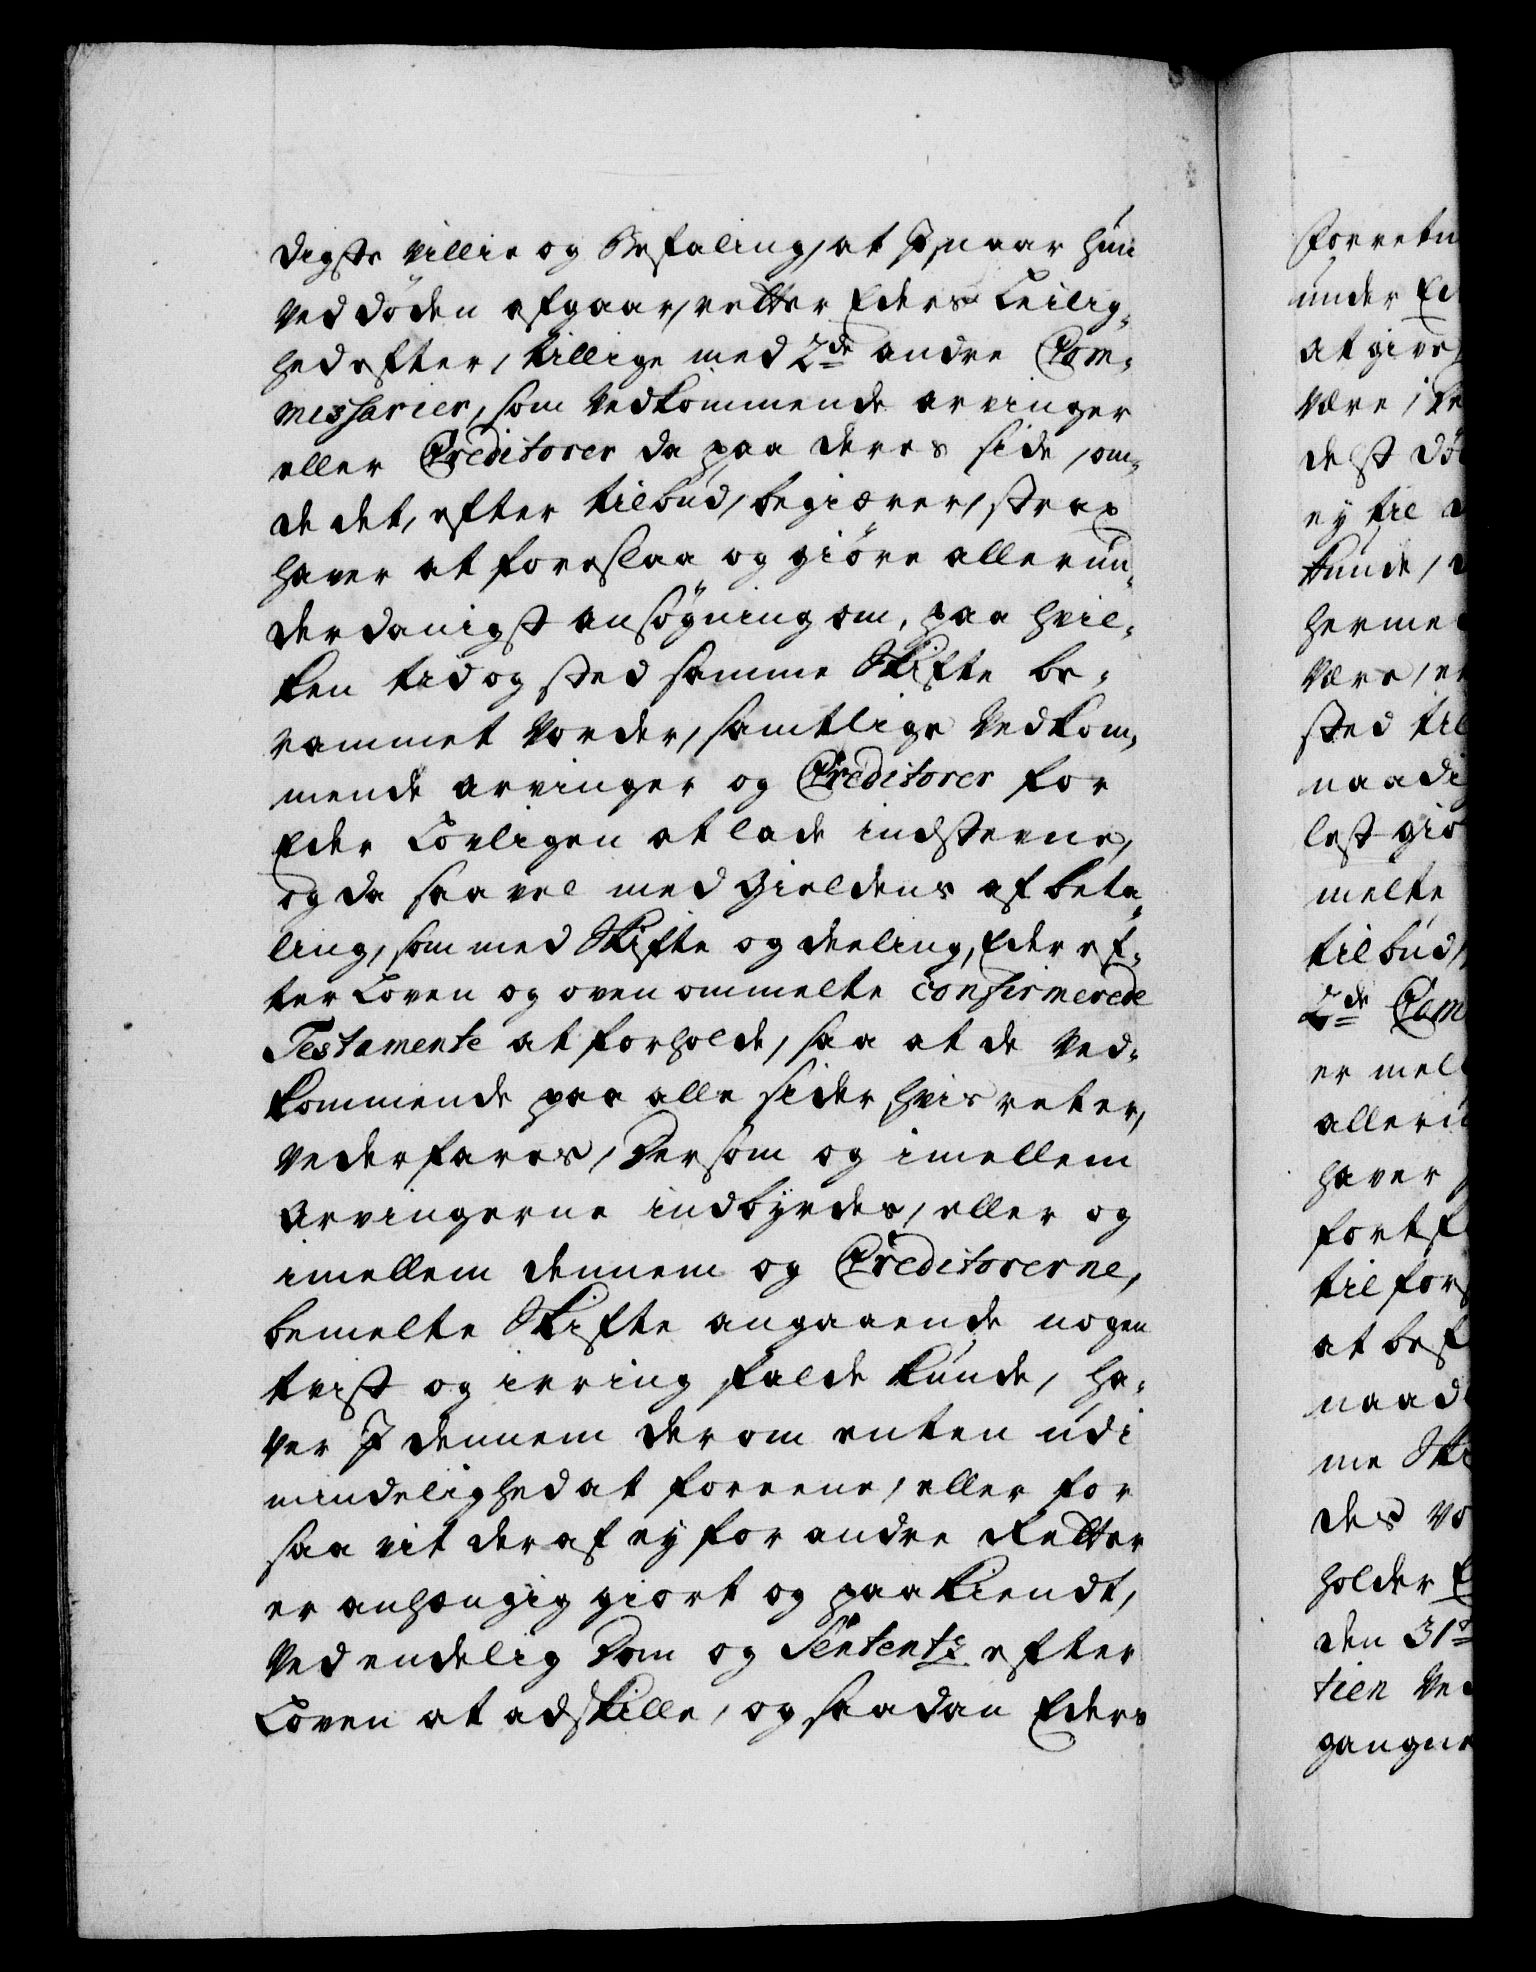 digste villie og Befaling, at I, naar hun
ved døden afgaar, retter Eders Leilig-
hed efter, tillige med 2de andre Com-
missarier, som vedkommende arvinger
eller Creditorer da paa deres side, om
de det, efter tilbud, begiærer, strax
haver at foreslaa og giøre allerun-
derdanigst ansøgning om, paa hvil-
ken tid og sted samme Skifte be-
rammet vorder, samtlige vedkom-
mende arvinger og Creditorer for
Eder Lovligen at lade indstevne,
og da saavel med Gieldens afbeta-
ling, som med Skifte og deeling, Eder ef-
ter Loven og oven ommelte confirmerede
Testamente at forholde, saa at de ved-
kommende paa alle sider hvis ret er,
vederfares, Dersom og imellem
Arvingerne indbyrdes, eller og
imellem dennem og Creditorerne,
bemelte Skifte angaaende nogen
tvist og irring falde kunde, ha-
ver I dennem derom enten udi
mindelighed at foreene, eller for
saa vit deraf ey for andre Retter
er anhængig giort og paakiendt,
ved endelig Dom og Sententz efter
Loven at adskille, og saadan Eders
Forretn
under Ed
at give
være, be
delst dø
ey til
kunde,
herme
være, e
sted til
naadi
lest giø
melte
tilbud,
2de Com
er mel
alleru
haver
fortf
til for
at bes
naad
me Ski
des vo
holder E
den 31
tien ve
gangne